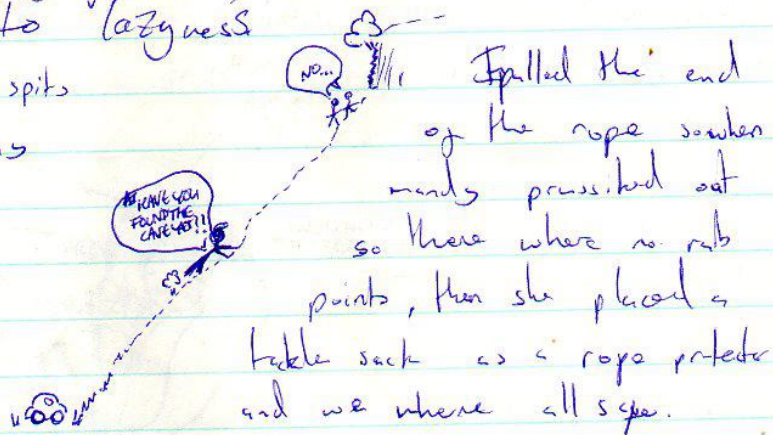 to lazyness
spits
NO...
HAVE YOU
FOUND THE
CAVE YET!!
I pulled the end
of the rope so when
mandy prussiked out
so there where no rub
points, then she placed a
tackle sack as a rope protector
and we where all safe.